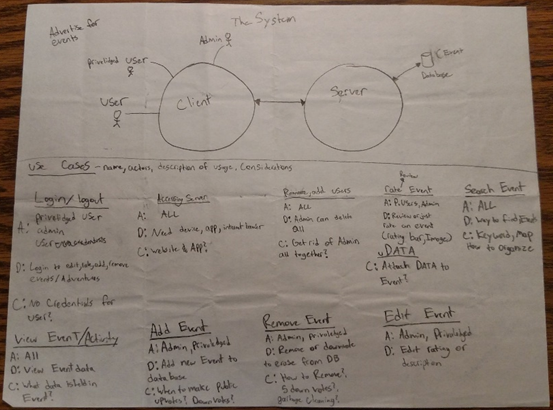 The System
Advertise for
events
Admin
priviledged user
user
Client
Server
Event
Database
use Cases - name, actors, description of usage, Considerations
Login/logout
A: priviledged user
admin
D: Login to edit, rate, add, remove
events/Adventures
C: No Credentials for
user?
Accessing Server
A: ALL
D: Need device, app, internet
C: website & App?
Remove, add users
A: ALL
D: Admin can delete
all
C: Get rid of Admin
all together?
Review
rate Event
A: P.Users, Admin
D: Review or just
rate an event
(rating bar, Image)
DATA
C: Attach DATA to
Event?
Search Event
A: ALL
D: Way to find Events
C: Keyword, Map
How to Organize
View Event/Activity
A: All
D: View Event data
C: What data is held in
Event?
Add Event
A: Admin, Priviledged
D: Add new Event to
database
C: When to make Public
upvotes? Down Votes?
Remove Event
A: Admin, priviledged
D: Remove or downvote
to erase from DB
C: How to Remove?
5 down votes?
garbage cleaning?
Edit Event
A: Admin, Priviledged
D: Edit rating or
description